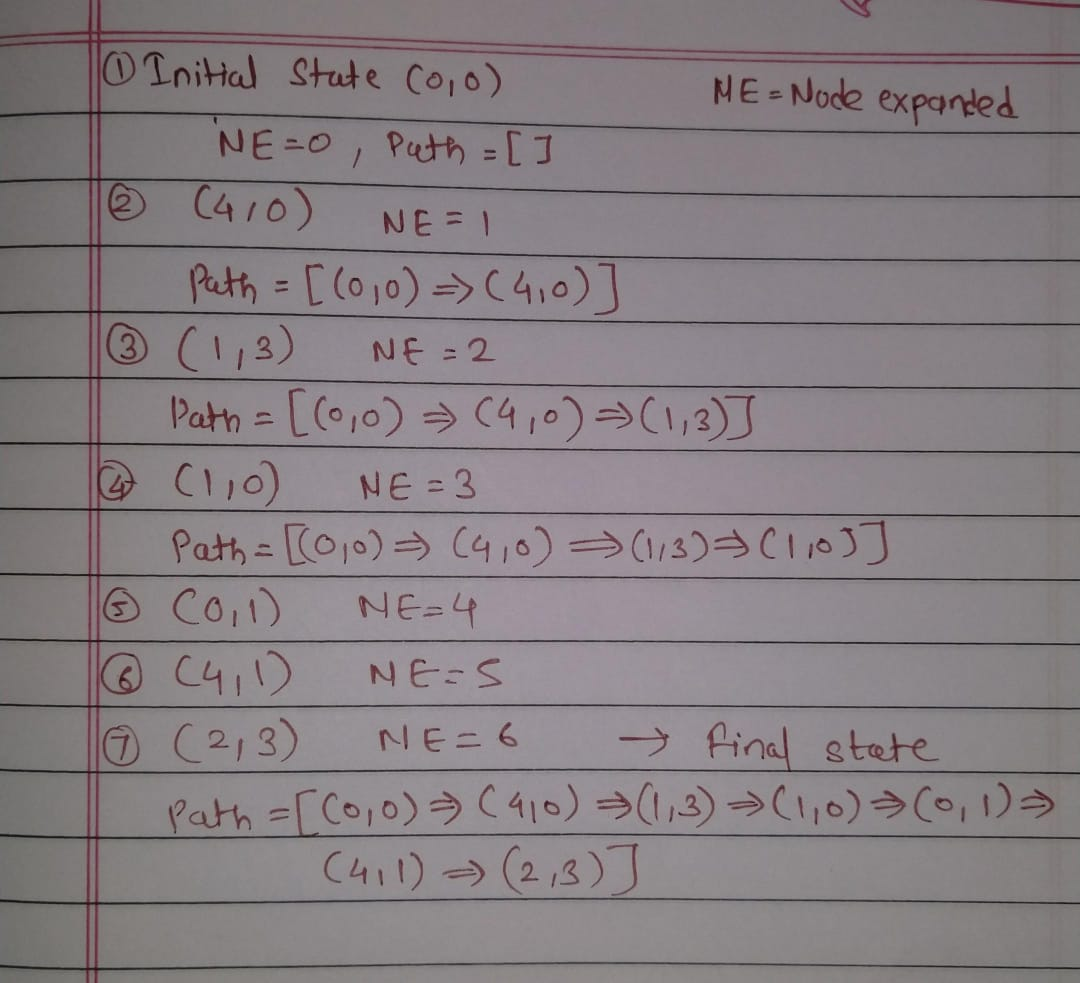 ① Initial State (0,0)
NE = Node expanded
NE=0, Path = []
② (4,0) NE = 1
Path = [(0,0) ⇒ (4,0)]
③ (1,3) NE = 2
Path = [(0,0) ⇒ (4,0) ⇒ (1,3)]
④ (1,0) NE = 3
Path = [(0,0) ⇒ (4,0) ⇒ (1,3) ⇒ (1,0)]
⑤ (0,1) NE=4
⑥ (4,1) NE=5
⑦ (2,3) NE=6 → final state
Path = [(0,0) ⇒ (4,0) ⇒ (1,3) ⇒ (1,0) ⇒ (0,1) ⇒
(4,1) ⇒ (2,3)]